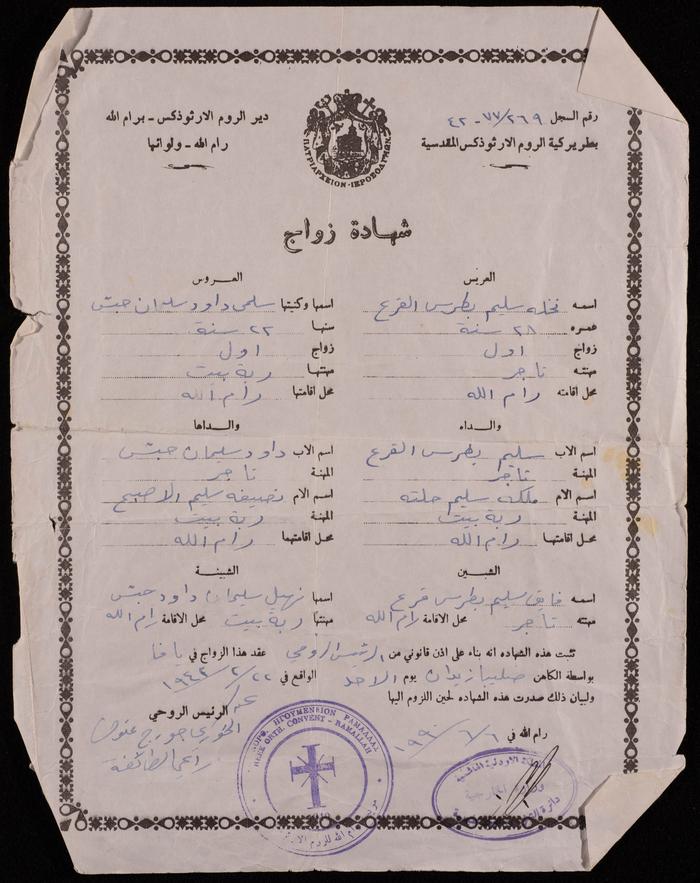 رقم السجل ٧٧/٢٦٩ - ٤٢
بطريركية الروم الارثوذكس المقدسية
دير الروم الارثوذكس - برام الله
رام الله - ولوائها
ΠΑΤΡΙΑΡΧΕΙΟΝ·ΙΕΡΟΣΟΛΥΜΩΝ
شهادة زواج
العريس العروس
اسمه نخله سليم بطرس القرع اسمها وكنيتها سلمى داود سليمان حبش
عمره ٢٨ سنة سنها ٢٢ سنة
زواج اول زواج اول
مهنته تاجر مهنتها ربة بيت
محل اقامته رام الله محل اقامتها رام الله
والداه والداها
اسم الاب سليم بطرس القرع اسم الاب داود سليمان حبش
المهنة تاجر المهنة تاجر
اسم الام ملكه سليم اسم الام نصيفه سليم
المهنة ربة بيت المهنة ربة بيت
محل اقامتهما رام الله محل اقامتهما رام الله
الشبين الشبينة
اسمه فايق سليم بطرس قرع اسمها سليمان داود حبش
مهنته تاجر محل الاقامة رام الله مهنتها ربة بيت محل الاقامة رام الله
تثبت هذه الشهاده انه بناء على اذن قانوني من الرئيس الروحي عقد هذا الزواج في يافا
بواسطة الكاهن صليبا زيدان يوم الاحد الواقع في ٢٢/٢/١٩٤٢
ولبيان ذلك صدرت هذه الشهاده لحين اللزوم اليها
رام الله في ١٩٩٠/٦/٦
الرئيس الروحي
الخوري جورج
راعي الطائفة
GREEK ORTH. CONVENT - RAMALLAH
ΗΓΟΥΜΕΝΕΙΟΝ ΡΑΜΑΛΛΑΣ
رام الله للروم